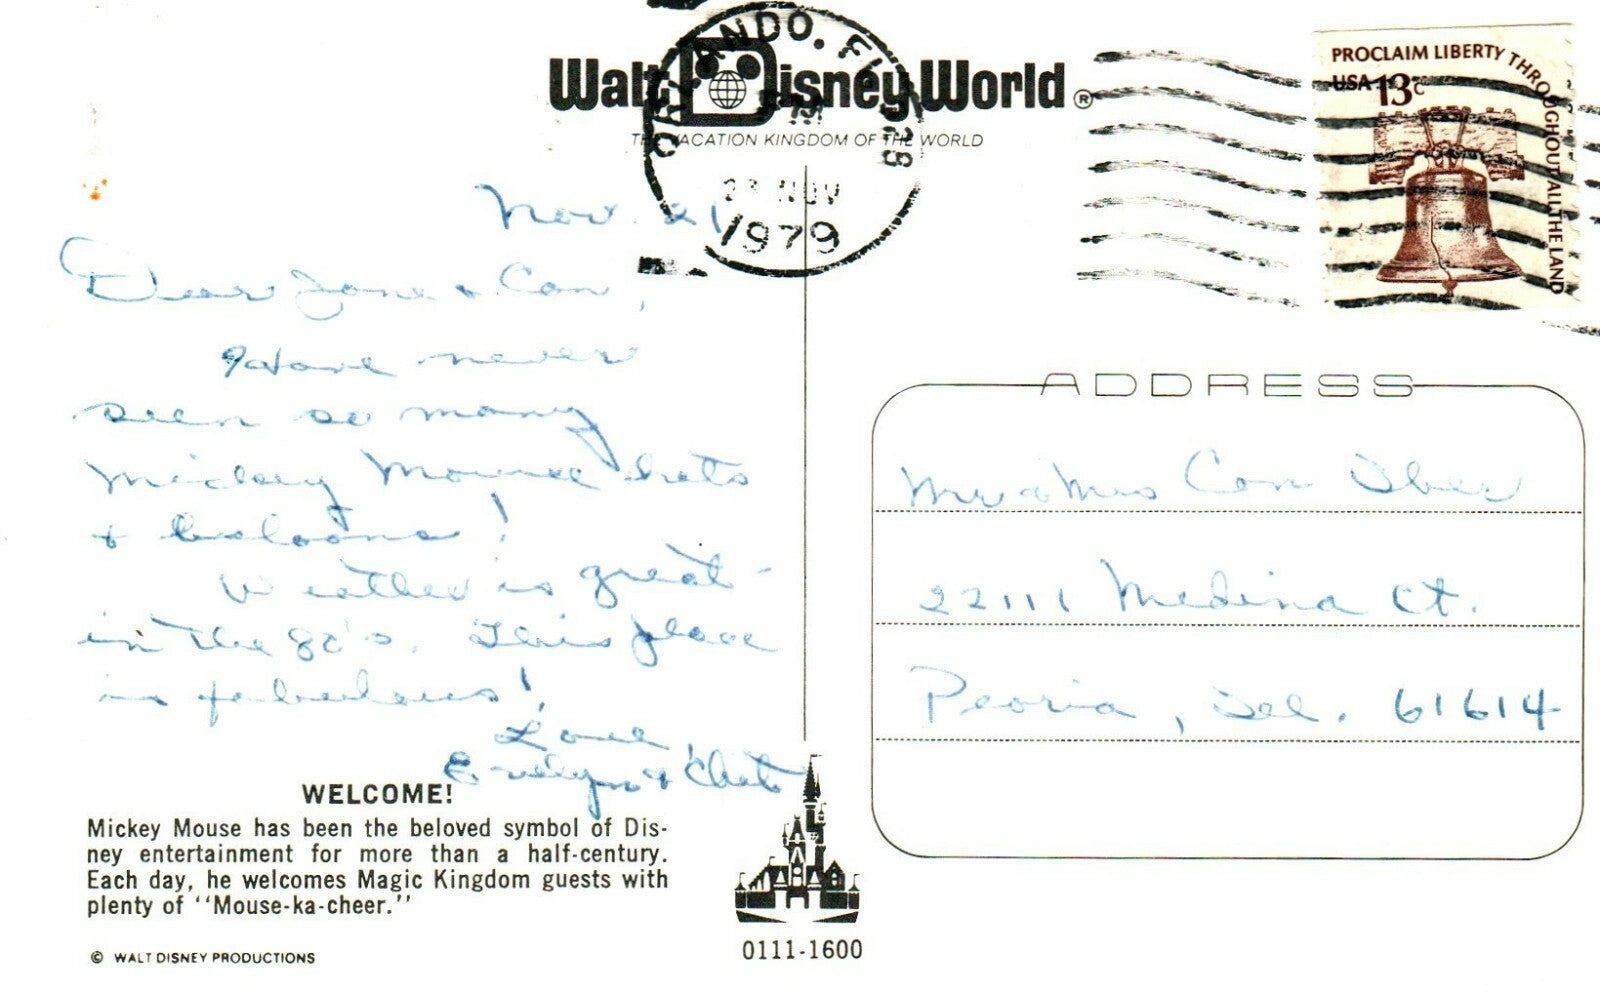 Walt Disney World ®
THE VACATION KINGDOM OF THE WORLD
ORLANDO, FL 328
PM
23 NOV
1979
PROCLAIM LIBERTY THROUGHOUT ALL THE LAND
USA 13c
Nov. 21
Dear Jane & Con,
Have never
seen so many
Mickey Mouse hats
& baloons!
Weather is great -
in the 80's. This place
is fabulous!
Love,
Evelyn & Chet
ADDRESS
Mr & Mrs Con Iber
22111 Medina Ct.
Peoria, Ill. 61614
WELCOME!
Mickey Mouse has been the beloved symbol of Dis-
ney entertainment for more than a half-century.
Each day, he welcomes Magic Kingdom guests with
plenty of "Mouse-ka-cheer."
© WALT DISNEY PRODUCTIONS
0111-1600